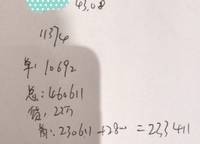 43.08
11374
单:10692
总:460611
信:23万
前:230611+2800=233411